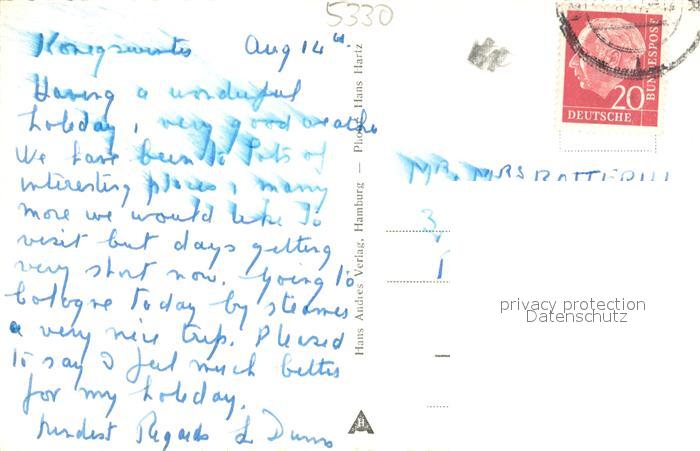 5330
Konegswinter Aug 14th.
Having a wonderful
holeday, very good weather
We have been to lots of
interesting places, many
more we would like to
visit but days getting
very short now. Going to
Cologne today by steamer
a very nice trip. Pleased
to say I feel much better
for my holeday.
Kindest Regards L Dunn
Hans Andres Verlag, Hamburg — Photo: Hans Hartz
H
A
20
DEUTSCHE
BUNDESPOST
MR. MRS
3
privacy protection
Datenschutz